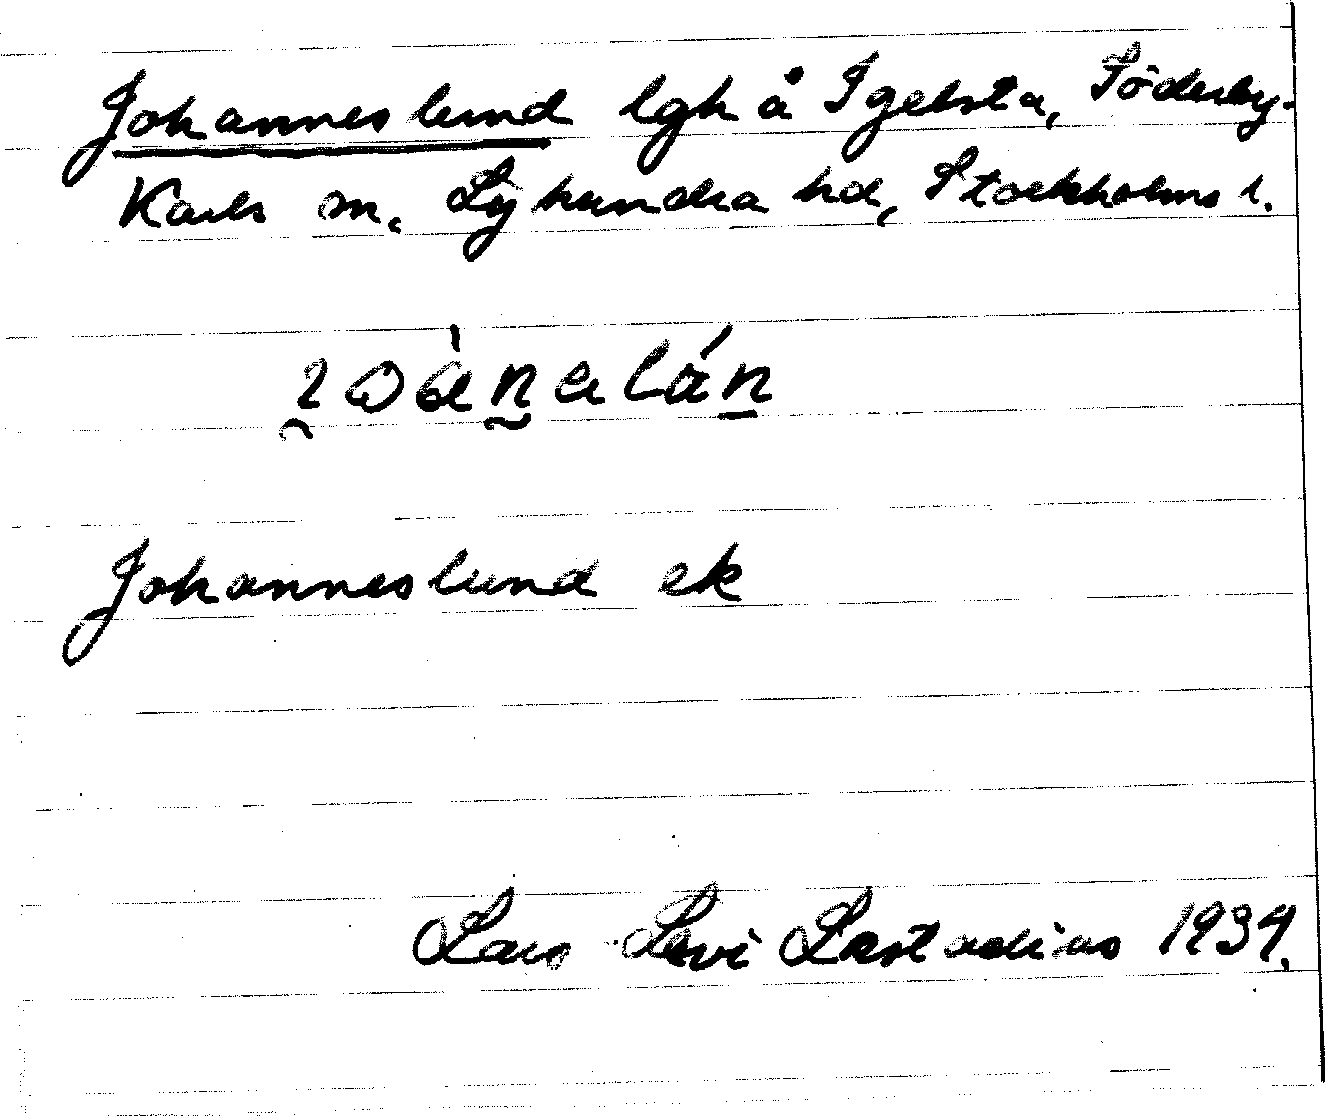 Johanneslund lgh å Igelsta, Söderby-
Karls sn. Lyhundra hd, Stockholms l.
Johanneslund ek
Lars Levi Læstadius 1934.